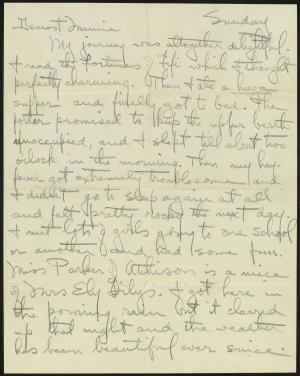 Sunday
Dearest Mamma
My journey was altogether delightful.
I read the Fortunes of Fifi which I thought
perfectly charming. Then I ate a huge
supper and finally got to bed. The
porter promised to keep the upper berth
unoccupied, and I slept till about two
oclock in the morning. Then my hay-
fever got extremely troublesome and
I didn't go to sleep again at all
and felt pretty rocky the next day.
I met lots of girls going to one school
or another and had some fun.
Miss Parker of Atchison is a niece
of Mrs Ely Lily's. I got here in
the pouring rain but it cleared
up that night and the weather
has been beautiful ever since.